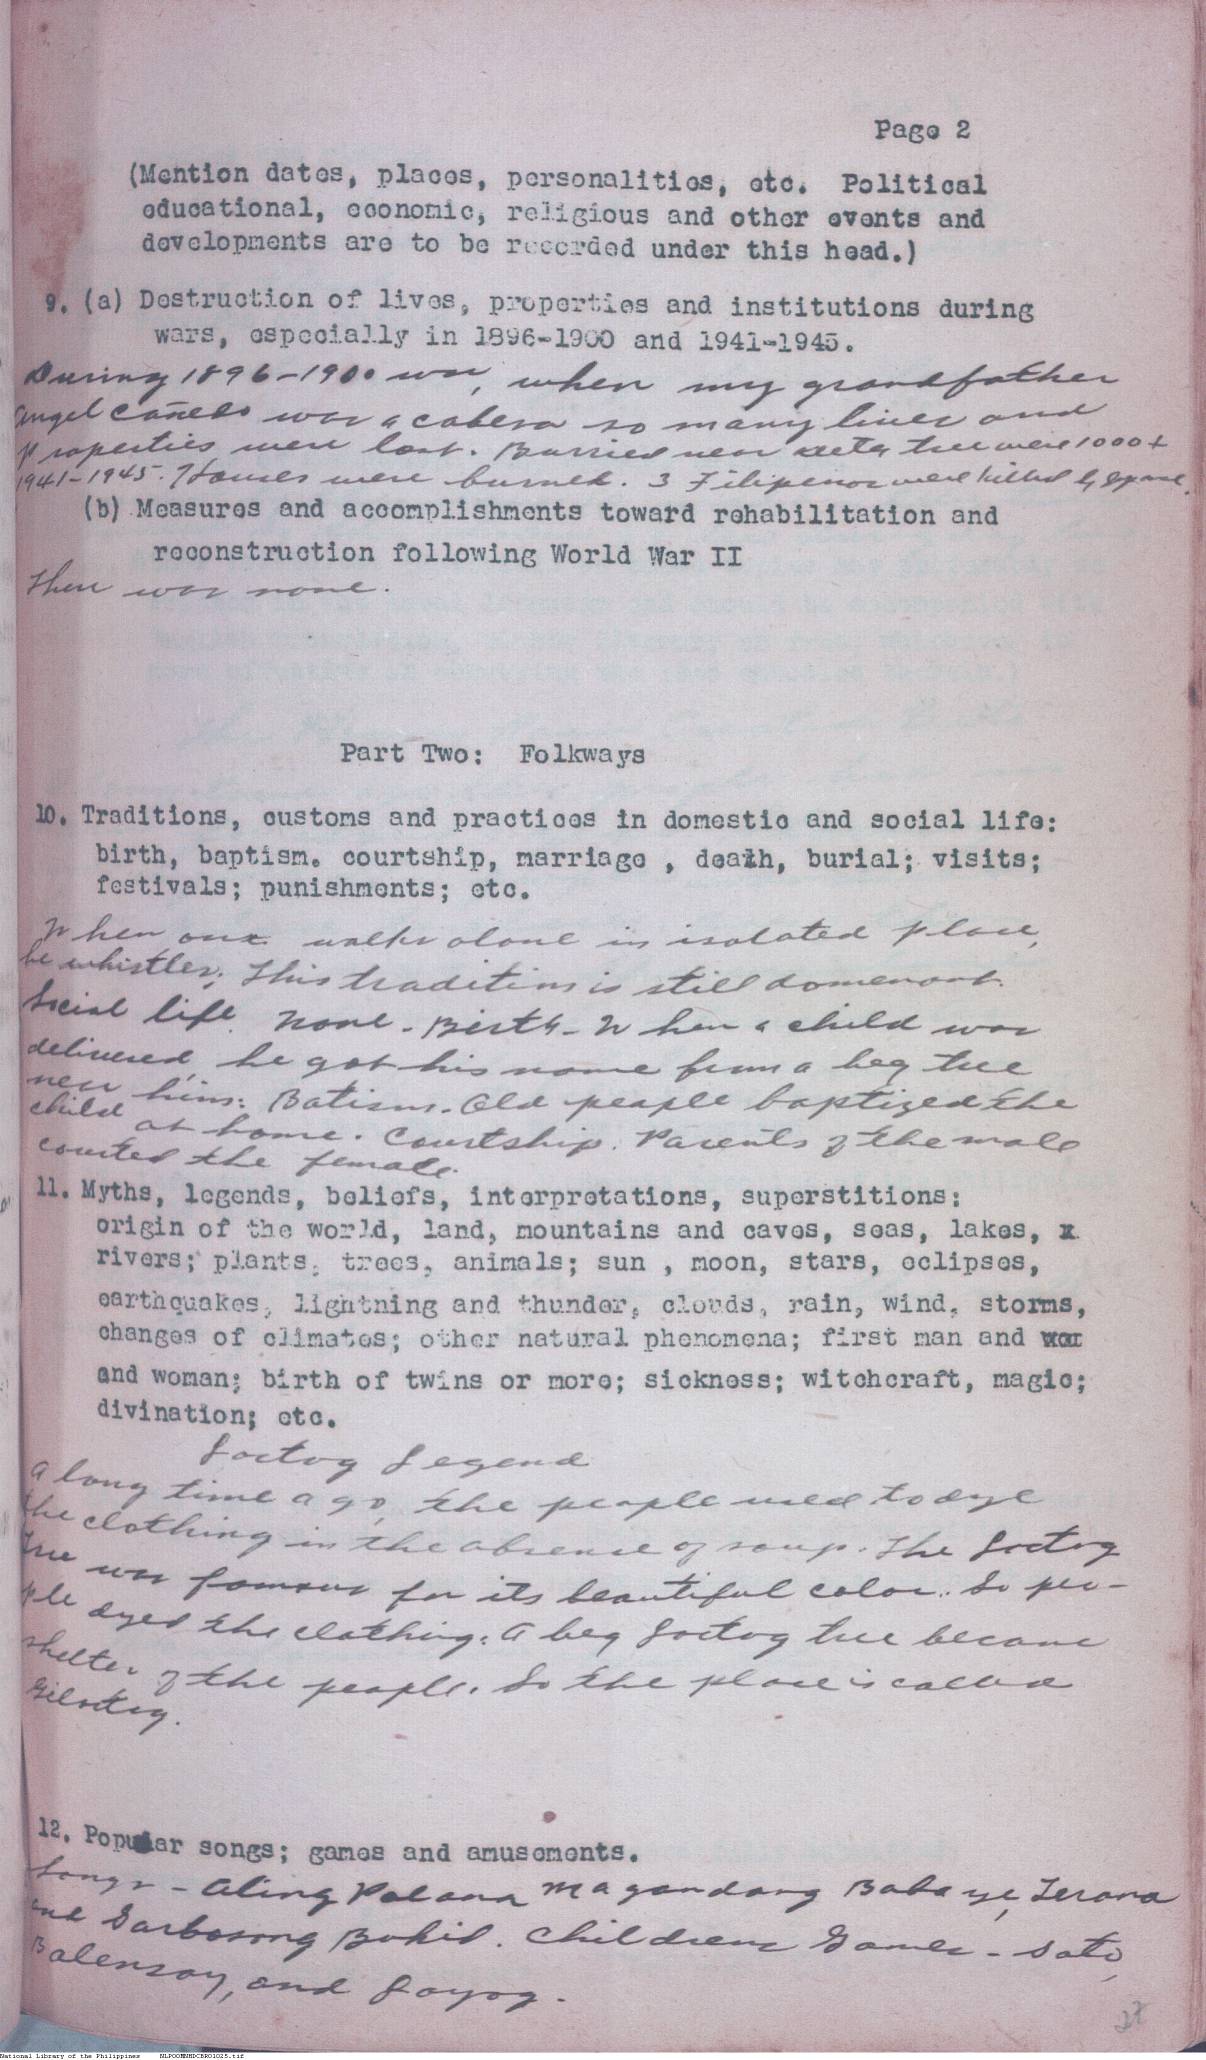 Page 2
(Mention dates, places, personalities, etc. Political
educational, economic, religious and other events and
developments are to be recorded under this head.)
9. (a) Destruction of lives, properties and institutions during
wars, especially in 1896-1900 and 1941-1945.
During 1896-1900 war, when my grandfather
Angel Cañedo was a cabesa so many lives and
properties were lost. Burried near tree were 1000+
1941-1945. Houses were burned. 3 Filipinos were killed by
(b) Measures and accomplishments toward rehabilitation and
reconstruction following World War II
There was none.
Part Two: Folkways
10. Traditions, customs and practices in domestic and social life:
birth, baptism. courtship, marriage , death, burial; visits;
festivals; punishments; etc.
When one walks alone in isolated place,
he whistles; This tradition is still domenant.
Social life. None - Birth - When a child was
delivered, he got his name from a beg tree
near him: Batism - Old people baptized the
child at home. Courtship. Parents of the male
courted the female.
11. Myths, legends, beliefs, interpretations, superstitions:
origin of the world, land, mountains and caves, seas, lakes, x
rivers; plants, trees, animals; sun , moon, stars, eclipses,
earthquakes, lightning and thunder, clouds, rain, wind, storms,
changes of climates; other natural phenomena; first man and
and woman; birth of twins or more; sickness; witchcraft, magic;
divination; etc.
Loctog Legend
A long time ago, the people used to dye
the clothing in the absence of soup. The Loctog
tree was famous for its beautiful color. So peo-
ple dyed the clothing. A beg Loctog tree became
shelter of the people. So the place is called
Giloctog.
12. Popular songs; games and amusements.
Songs - Aling Pelana Magandang Babaye, Terana
and Sarbosong Bukid. Childrens Games - Sato,
Balensay, and Loyog.
27
National Library of the Philippines NLPOOMNHDCBR01025.tif